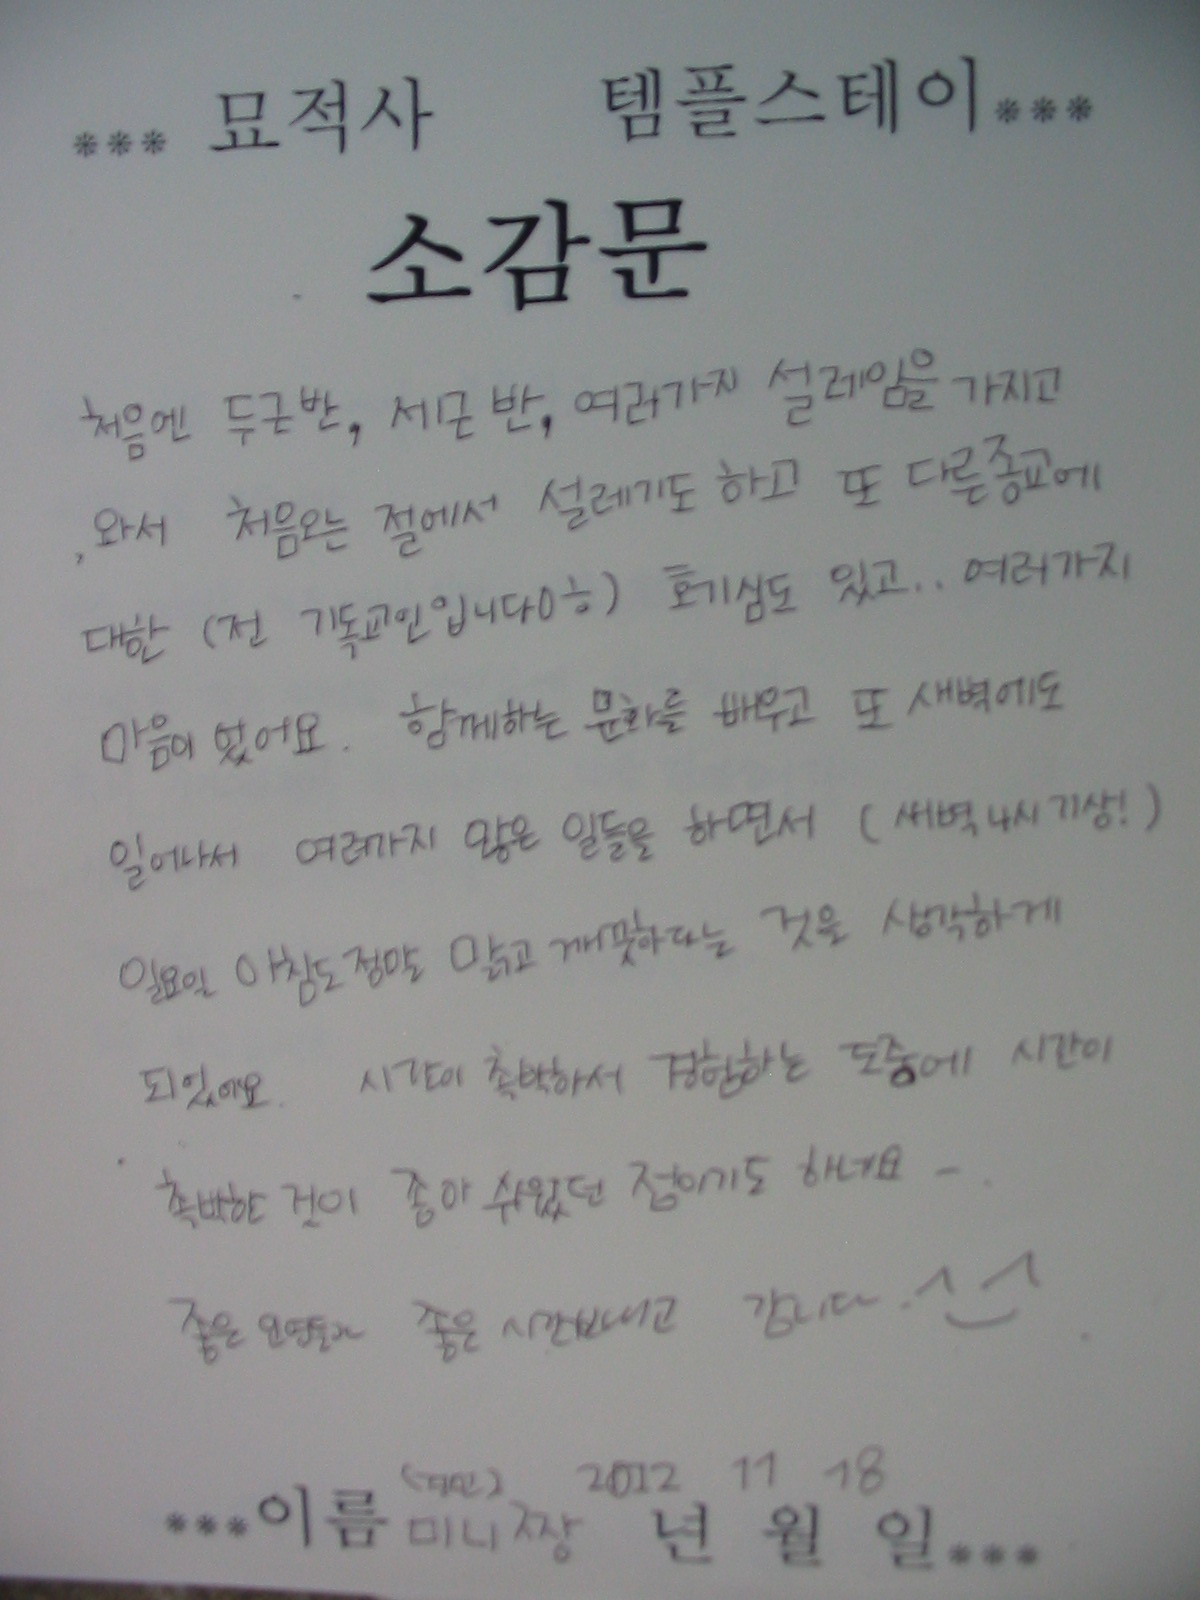 *** 묘적사 템플스테이***
소감문
처음엔 두근반, 세근 반, 여러가지 설레임을 가지고
, 와서 처음오는 절에서 설레기도 하고 또 다른종교에
대한 (전 기독교인입니다아ㅎ) 호기심도 있고.. 여러가지
마음이 있어요. 함께하는 문화를 배우고 또 새벽에도
일어나서 여러가지 많은 일들을 하면서 (새벽 4시 기상!)
일요일 아침도 정말 맑고 깨끗하다는 것을 생각하게
되었어요. 시간이 촉박하서 경험하는 도중에 시간이
촉박한 것이 좀 아쉬웠던 점이기도 하네요 -.
좋은 인연들과 좋은 시간보내고 갑니다. ^_^
***이름 미니짱 2012년 11월 18일***